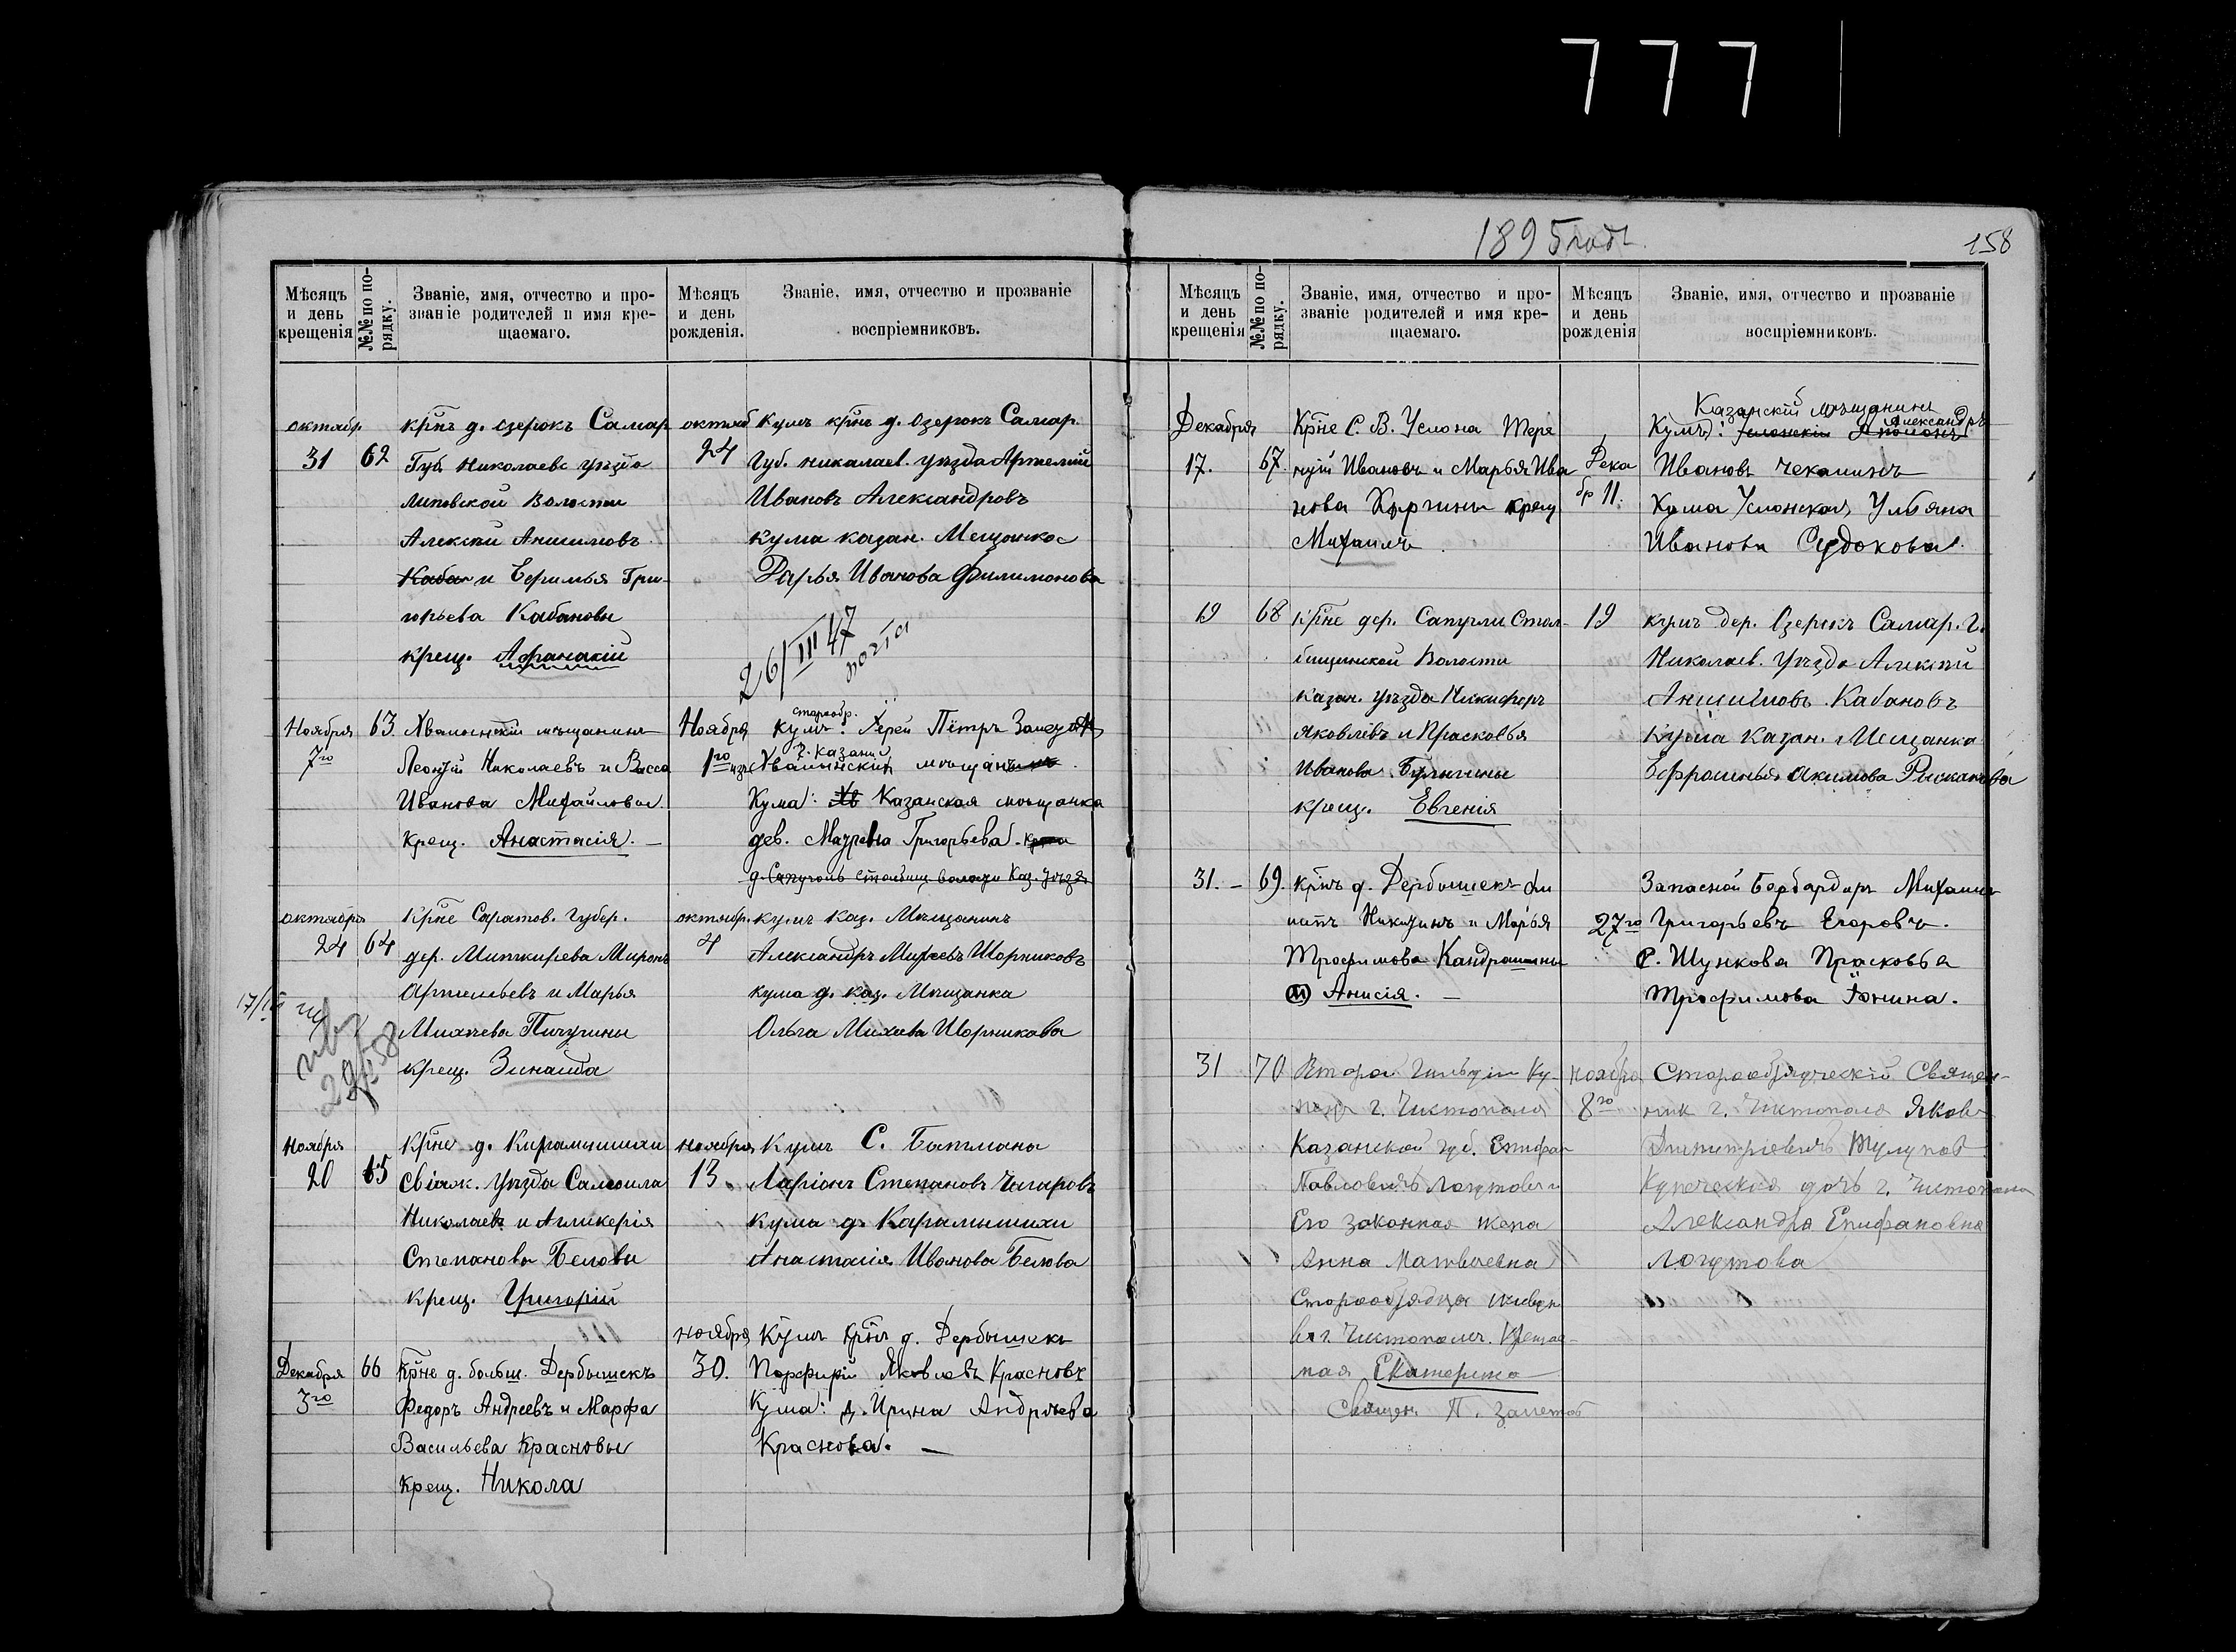 777
1895 годъ.
158
Мѣсяцъ и день крещенія
№№ по порядку.
Званіе, имя, отчество и про-
званіе родителей и имя кре-
щаемаго.
Мѣсяцъ и день рожденія.
Званіе, имя, отчество и прозваніе
воспріемниковъ.
октябр. 31
62
крнъ д. озерокъ Самар
Губ. Николаевс уѣзда
Липовской Волости
Алексѣй Анисимовъ
Кабан и Ефимья Гри-
горьева Кабановы
крещ. Афанасій
октяб 24
Кумъ крнъ д. Озерокъ Самар.
Губ. николаев. уѣзда Артемий
Ивановъ Александровъ
кума казан. Мещанка
Дарья Иванова Филимонова
26/III 47
Ноября 7го
63.
Хвалынскій мѣщанинъ
Леонтій Николаевъ и Васса
Иванова Михайловы
крещ. Анастасія. —
Ноября 1го
старообр.
Кумъ: Іерей Пётръ Залетовъ
г. Казани
Хвалынскій мѣщанинъ
Кума: Хв Казанская мѣщанка
дев. Матрена Григорьева. крест
д. Сапуголь Столбищ. волости Каз. уѣзда
октября 24
64
Крне Саратов. Губер.
дер. Миткирева Миронъ
Артемьевъ и Марья
Михеева Пичугины
крещ. Зинаида
октябр. 4
кумъ Каз. Мѣщанинъ
Александръ Михеевъ Шорниковъ
кума д. каз. Мѣщанка
Ольга Михеева Шорникова
Ноября 20
65
Крне д. Карамышихи
Свіяж. Уѣзда Самоила
Николаевъ и Агликерія
Степанова Беловы
крещ. Григорій
ноября 13.
Кумъ С. Батмана
Ларіонъ Степановъ Чигаровъ
кума д. Карамышихи
Анастасія Иванова Белова
Декабря 3го
66
Крне д. больш. Дербышекъ
Федоръ Андреевъ и Марфа
Васильева Красновы
крещ. Никола
ноября 30.
Кумъ крнъ д. Дербышекъ
Порфирій Яковлевъ Красновъ
Кума: д. Ирина Андреева
Краснова. —
Мѣсяцъ и день крещенія
№№ по порядку.
Званіе, имя, отчество и про-
званіе родителей и имя кре-
щаемаго.
Мѣсяцъ и день рожденія
Званіе, имя, отчество и прозваніе
воспріемниковъ.
Декабря 17.
67.
Крне С. В. Услона Тере
нтій Ивановъ и Марья Ива
нова Киргины крещ
Михаилъ
Декабр 11.
Казанскій мѣщанинъ
Александръ
Кумъ: Услонскій
Ивановъ Чекалинъ
Кума Услонская Ульяна
Иванова Судокова.
19
68
крне дер. Сапугли Стол-
бищинской Волости
казан. уѣзда Никифоръ
Яковлевъ и Прасковья
Иванова Булыгины
крещ. Евгенія
19
кумъ дер. Озерокъ Самар. г.
Николаев. уѣзда Алексѣй
Анисимовъ Кабановъ
Кума Казан. Мещанка
Ефросинья Акимова Рыжакова
31. –
69.
крнъ д. Дербышекъ Фи
липъ Никитинъ и Марья
Трофимова Кандрашины
Анисія. —
27го
Запасной Бербардиръ Михаилъ
Григорьевъ Егоровъ.
С. Шункова Прасковья
Трофимова Іонина.
31
70
Второй Гильдіи Ку-
пецъ г. Чистополя
Казанской губ. Епифан
Павловичъ Логутовъ и
Его законная жена
Анна Матвѣевна
Старообрядцы живут
въ г. Чистополѣ. Крещае-
мая Екатерина
Священ П. Залетов
Ноября 8го
Старообрядческій Священ-
ник г. Чистополя Яков
Димитріевичъ Тулупов
Купеческая дочь г. Чистополя
Александра Епифановна
Логутова